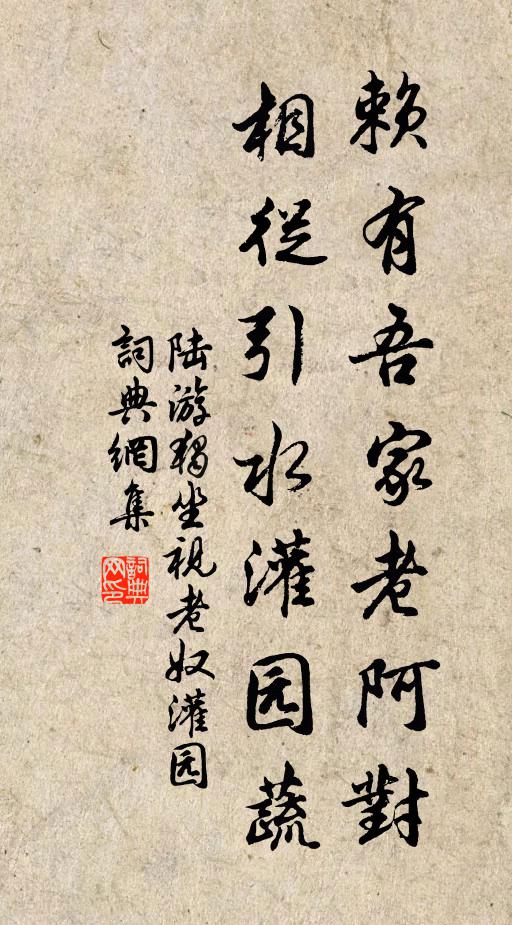 赖有吾家老阿對
相從引水灌园蔬
陆游獨坐视老奴灌园
詞典網集
詞典网印